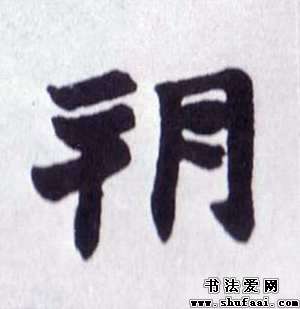 朔
书法爱网
www.shufaai.com